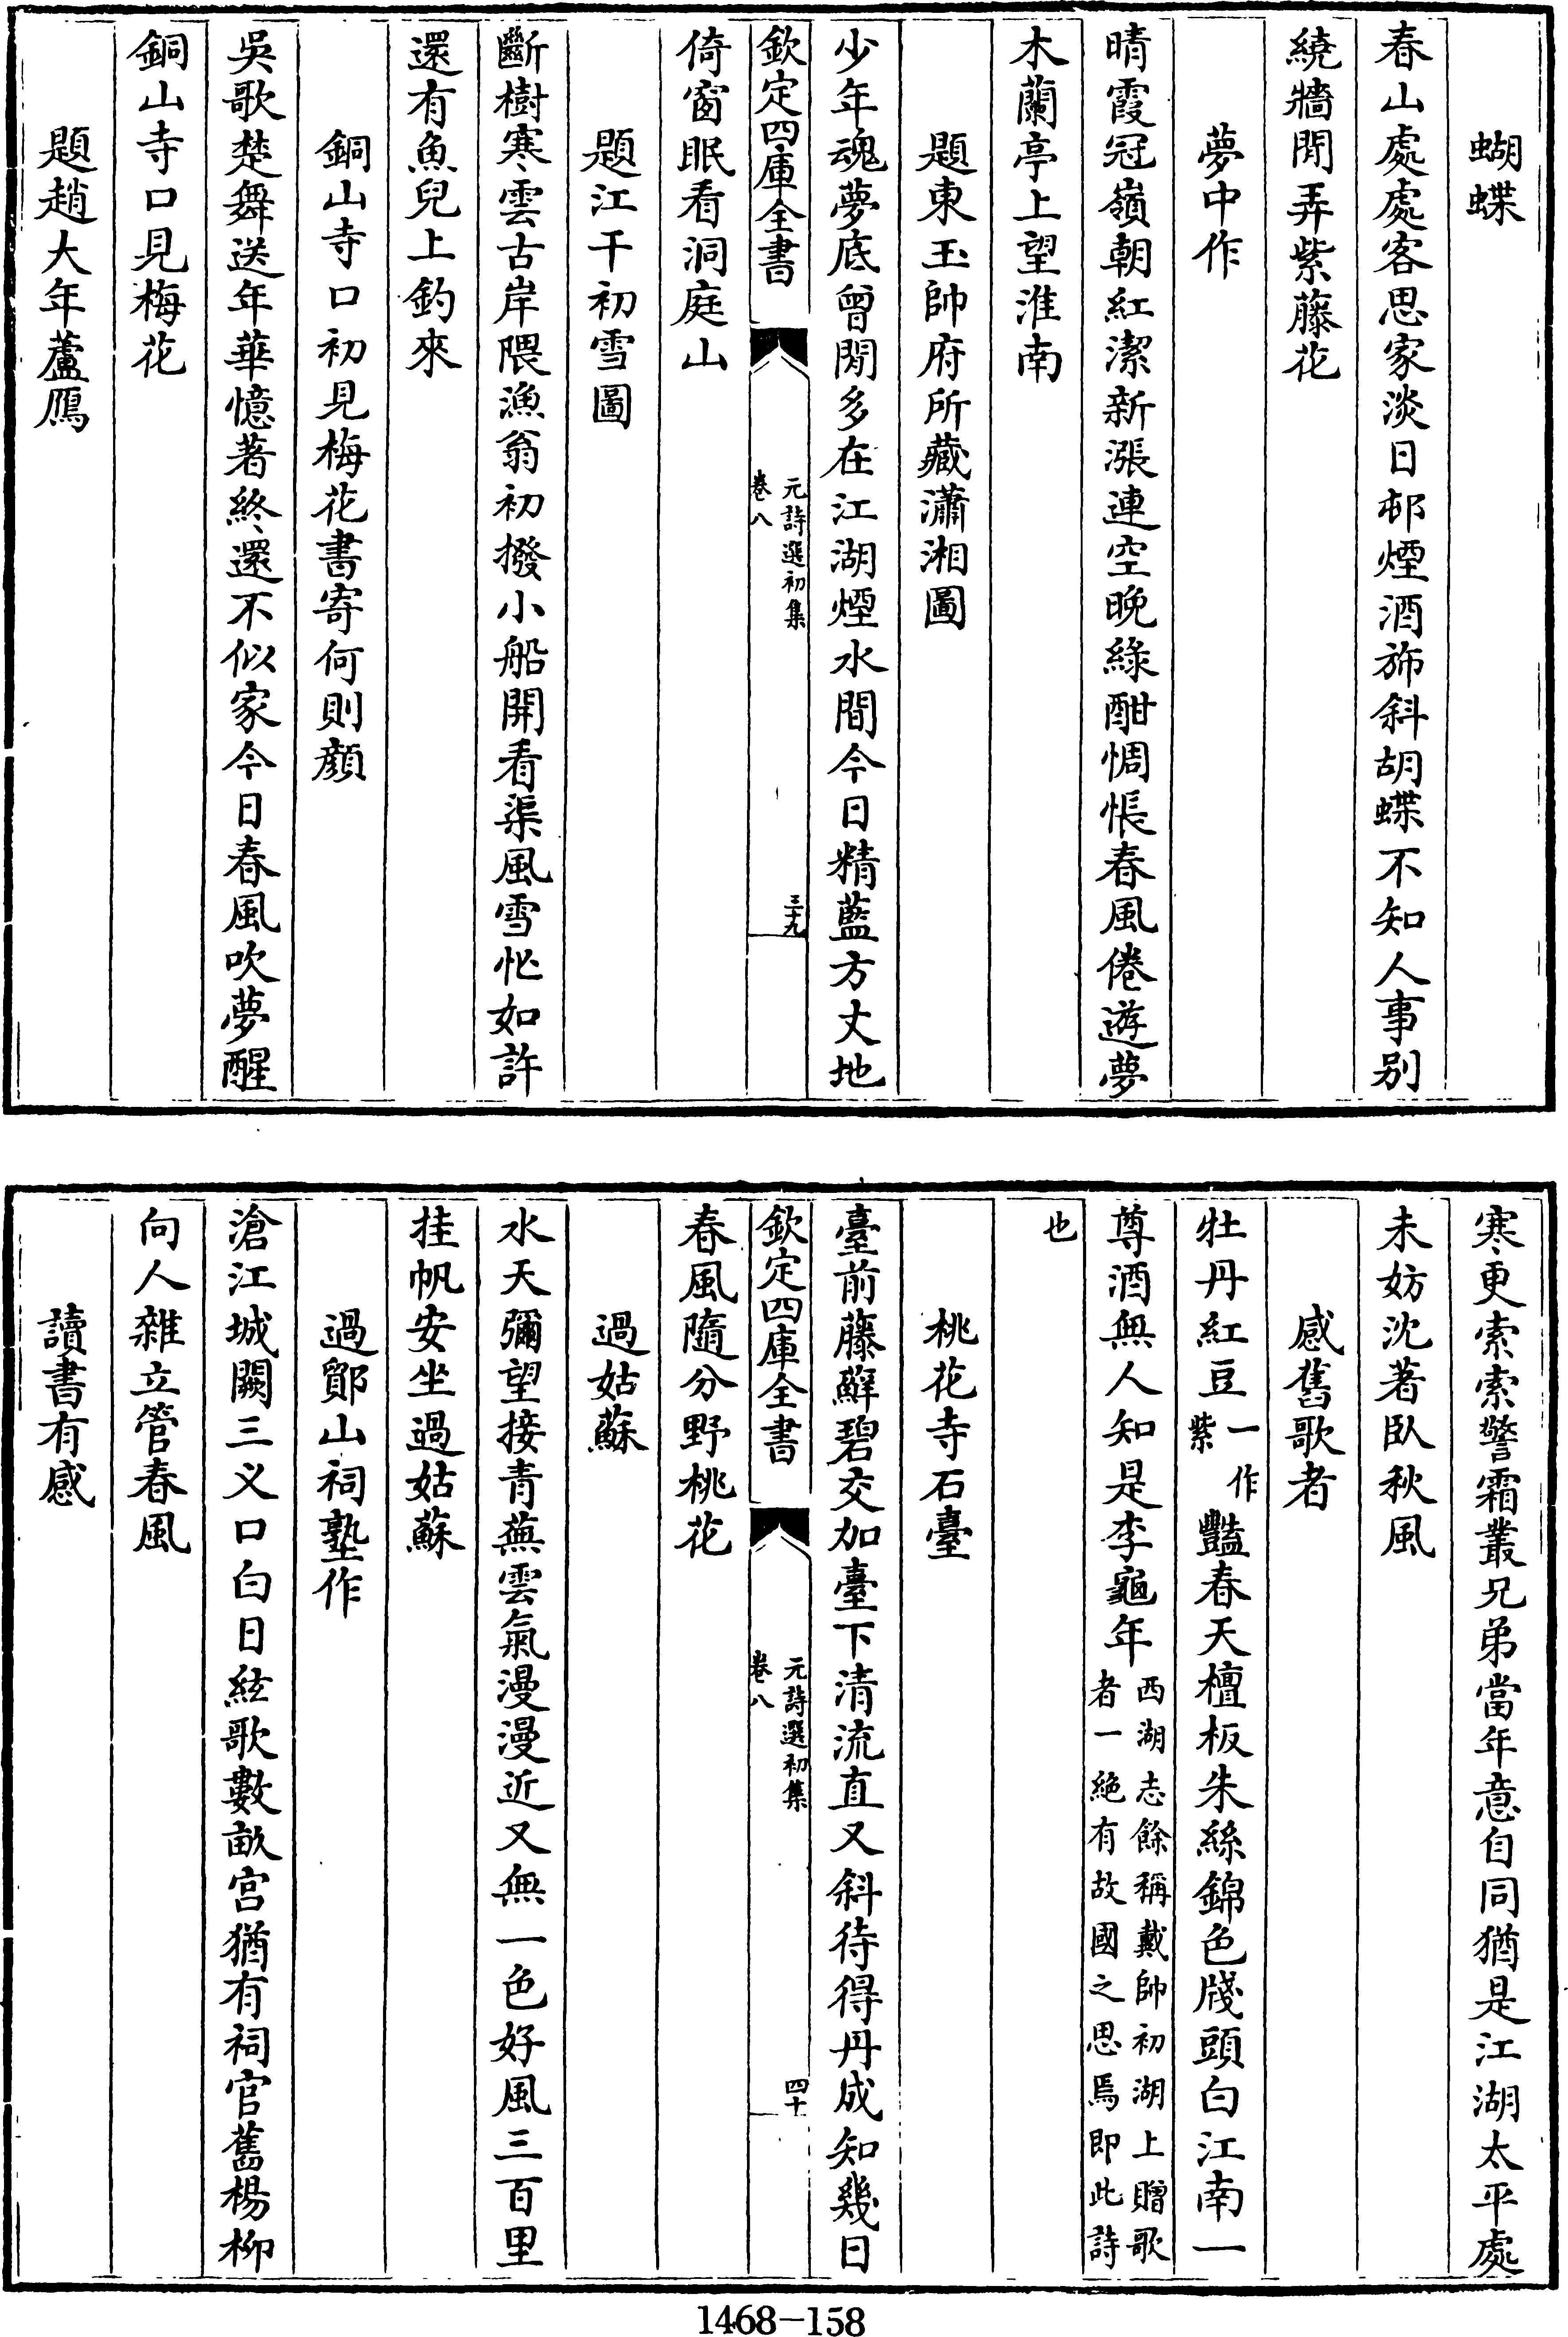 蝴蝶
春山處處客思家淡日邨煙酒斾斜胡蝶不知人事别
繞牆閒弄紫藤花
夢中作
晴霞冠嶺朝紅潔新漲連空晚綠酣惆悵春風倦遊夢
木蘭亭上望淮南
題東玉帥府所藏瀟湘圖
少年魂夢底曾閒多在江湖煙水間今日精藍方丈地
欽定四庫全書
元詩選初集
卷八
三十九
倚窗眠看洞庭山
題江干初雪圖
斷樹寒雲古岸隈漁翁初撥小船開看渠風雪忙如許
還有魚兒上釣來
銅山寺口初見梅花書寄何則顔
吳歌楚舞送年華憶著終還不似家今日春風吹夢醒
銅山寺口見梅花
題趙大年蘆鴈
寒更索索警霜叢兄弟當年意自同猶是江湖太平處
未妨沈著臥秋風
感舊歌者
牡丹紅豆一作紫豔春天檀板朱絲錦色牋頭白江南一
尊酒無人知是李龜年西湖志餘稱戴帥初湖上贈歌者一絶有故國之思焉即此詩
也
桃花寺石臺
臺前藤蘚碧交加臺下清流直又斜待得丹成知幾日
欽定四庫全書
元詩選初集
卷八
四十
春風隨分野桃花
過姑蘇
水天彌望接青蕪雲氣漫漫近又無一色好風三百里
挂帆安坐過姑蘇
過鄮山祠塾作
滄江城闕三义口白日絃歌數畝宫猶有祠官舊楊柳
向人雜立管春風
讀書有感
1468-158